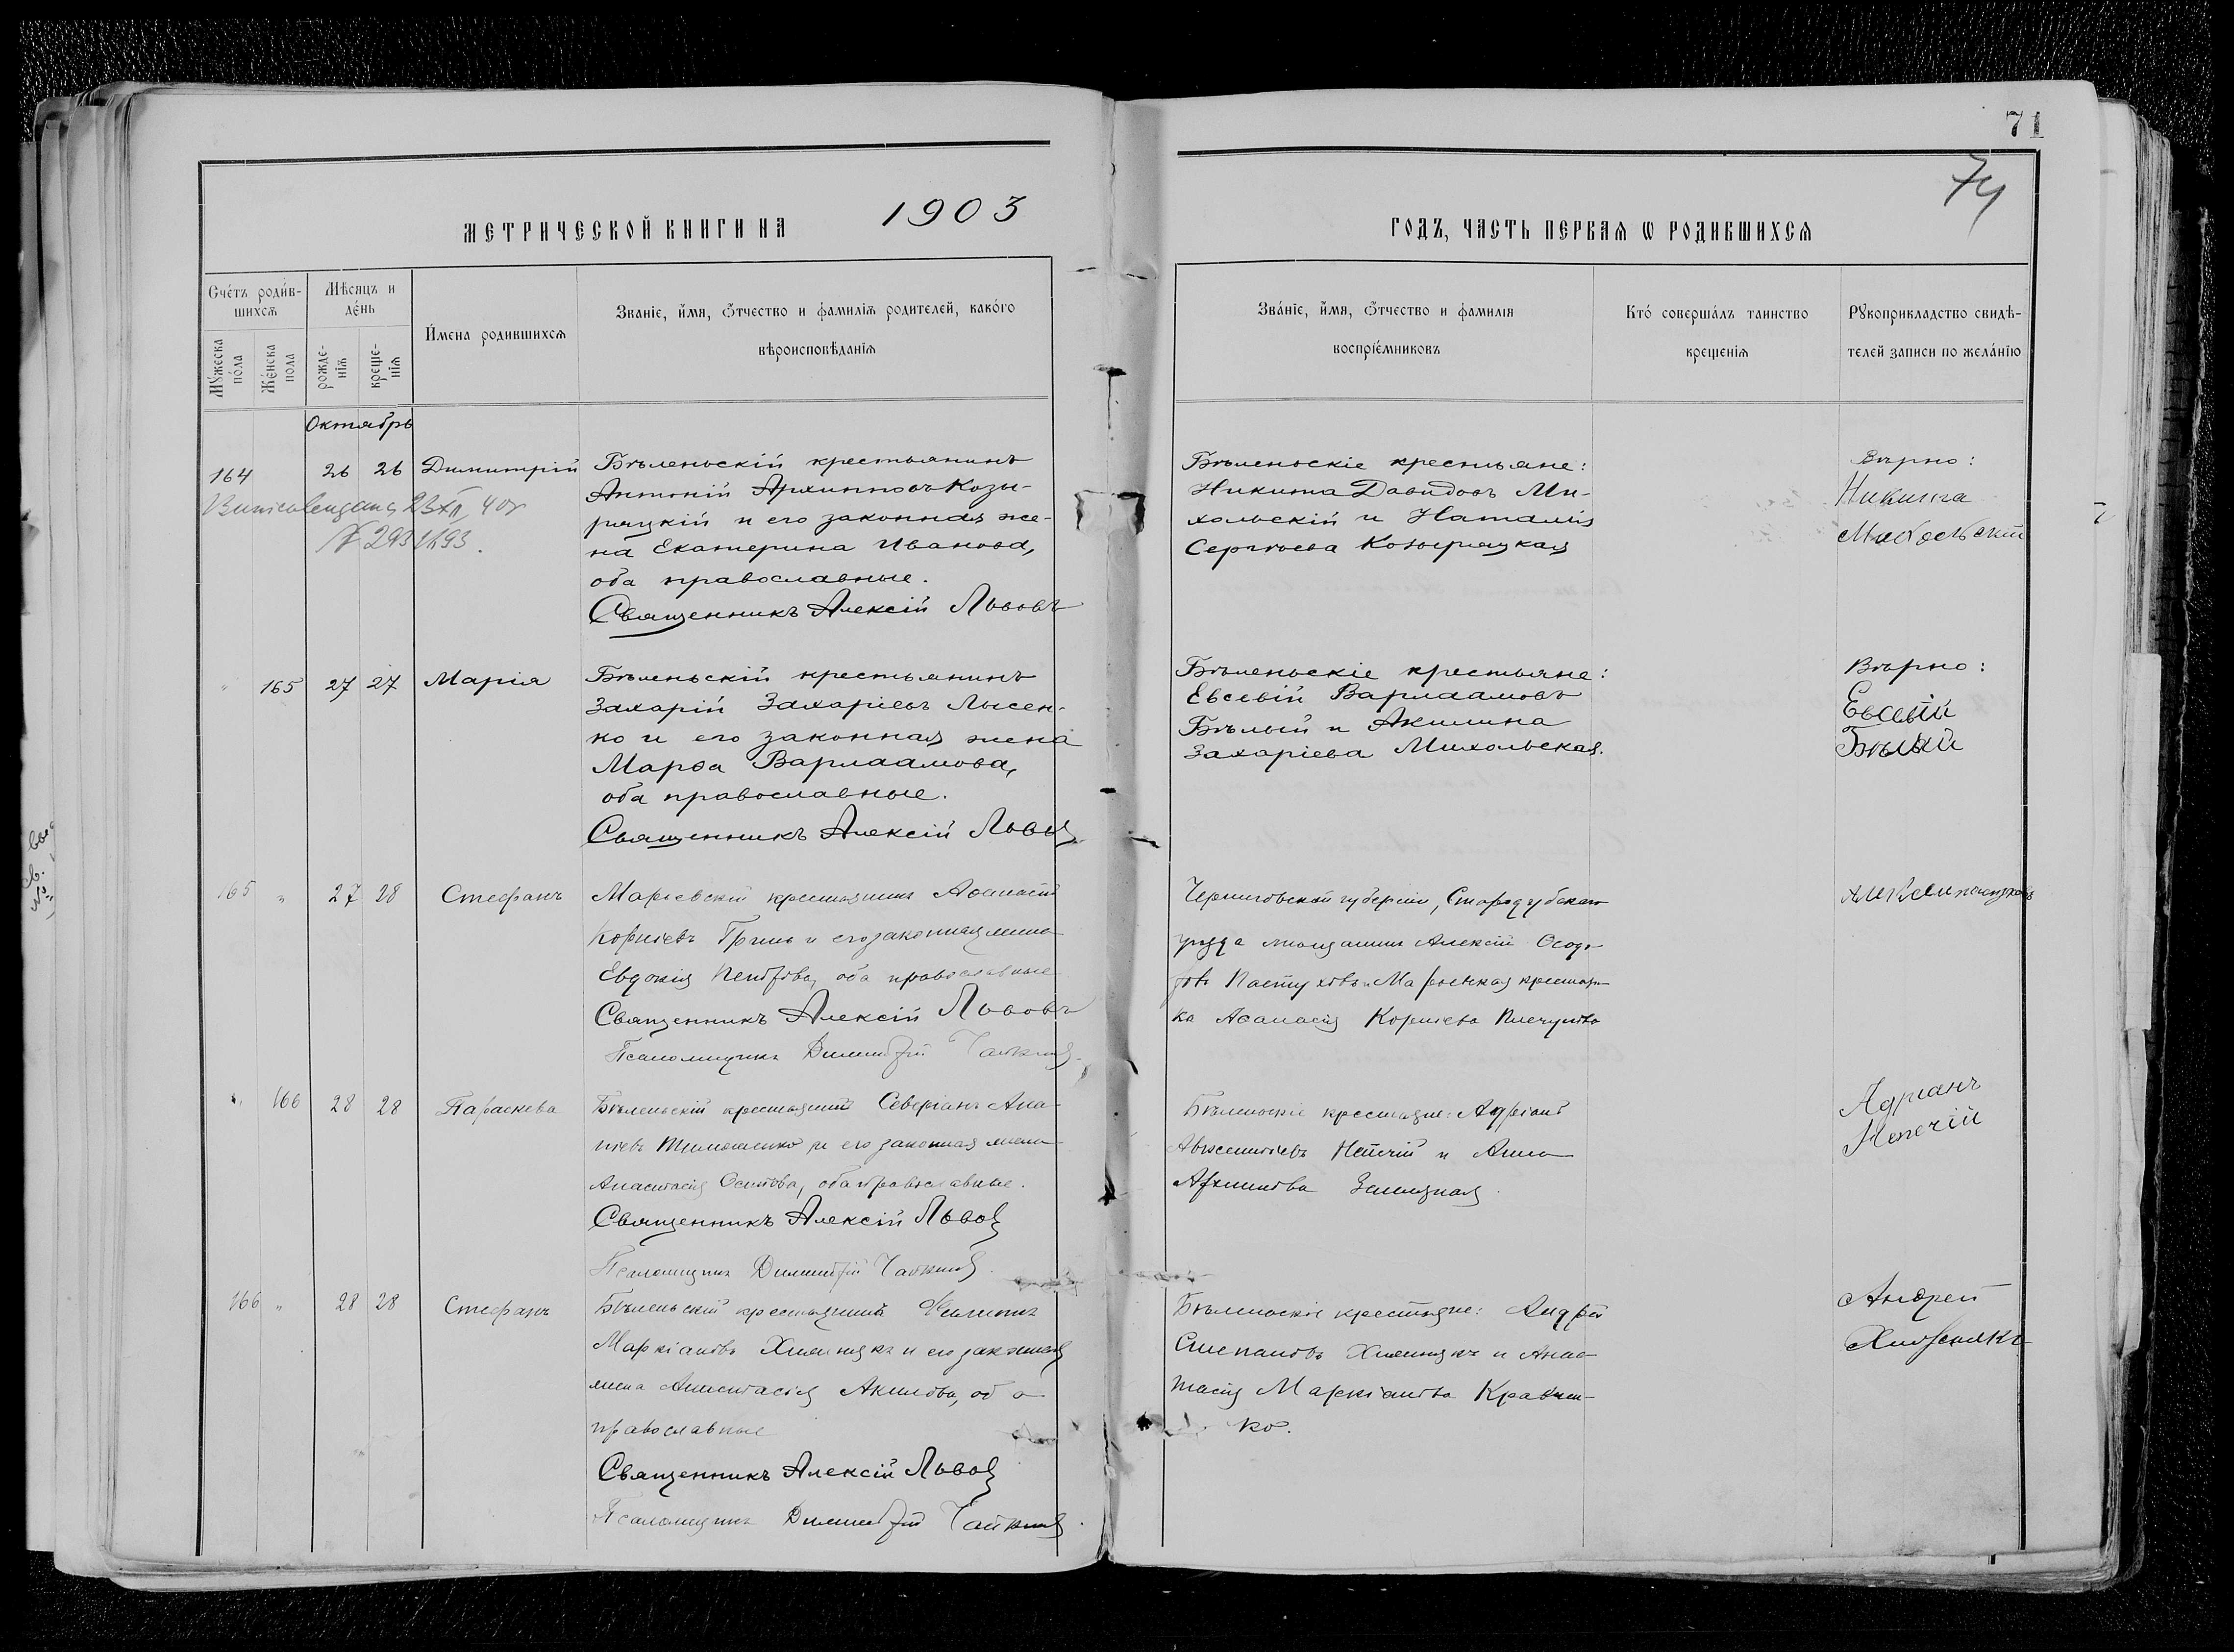 71
74
МЕТРИЧЕСКОЙ КНИГИ НА 1903
ГОДЪ, ЧАСТЬ ПЕРВАѦ Ѡ РОДИВШИХСѦ
Счéтъ роди́вшихсѧ
Мѣсяцъ и де́нь
И́мена родившихсѧ
Званіе, и́мя, ѻ́тчество и фами́ліѧ родителей, како́го
вѣроисповѣ́даніѧ
Мꙋ́жеска по́ла
Же́нска пола
рожденіѧ
крещеніѧ
Зва́ніе, и́мя, ѻ́тчество и фамилія
воспріе́мниковъ
Кто́ соверша́лъ таинство
крещеніѧ
Рꙋкоприкладство свидѣ-
телей записи по жела́нію
Октябрь
164 26 26 Димитрій
Бѣленьскій крестьянинъ
Антоній Архиповъ Козы-
ряцкій и его законная же-
на Екатерина Иванова,
оба православные.
Священникъ Алексій Львовъ
23 XII 40г
Бѣленьскіе крестьяне:
Никита Давидовъ Ми-
хольскій и Наталія
Сергѣева Козыряцкая
Вѣрно:
Никита
Михольскій
" 165 27 27 Марія
Бѣленьскій крестьянинъ
Захарій Захаріевъ Лысен-
ко и его законная жена
Марѳа Варлаамова,
оба православные.
Священникъ Алексій Львовъ
Бѣленьскіе крестьяне:
Евсевій Варлаамовъ
Бѣлый и Акилина
Захаріева Михольская.
Вѣрно:
Евсевій
Бѣлый
165 " 27 28 Стефанъ
Марьевскій крестьянинъ Аѳанасій
Корніевъ Гринь и его законная жена
Евдокія Петрова, оба православные
Священникъ Алексій Львовъ
Псаломщикъ Димитрій
Черниговской губерніи, Стародубскаго
уѣзда мѣщанинъ Алексій Ѳедо-
ровъ Пастуховъ и Марьевская крестьян-
ка Аѳанасія Корніева
" 166 28 28 Параскева
Бѣленьскій крестьянинъ Северіанъ Ана-
ніевъ Тимошенко и его законная жена
Анастасія Осипова, оба православные.
Священникъ Алексій Львовъ
Псаломщикъ Димитрій
Бѣленьскіе крестьяне: Адріанъ
Авксентіевъ Непечій и Анна
Архипова
Адріанъ
Непечій
166 " 28 28 Стефанъ
Бѣленьскій крестьянинъ Филиппъ
Маркіановъ Хижнякъ и его законная
жена Анастасія Акимова, оба
православные
Священникъ Алексій Львовъ
Псаломщикъ Димитрій
Бѣленьскіе крестьяне: Андрей
Степановъ Хижнякъ и Анас-
тасія Маркіанова Кравчен-
ко.
Андрей
Хижнякъ